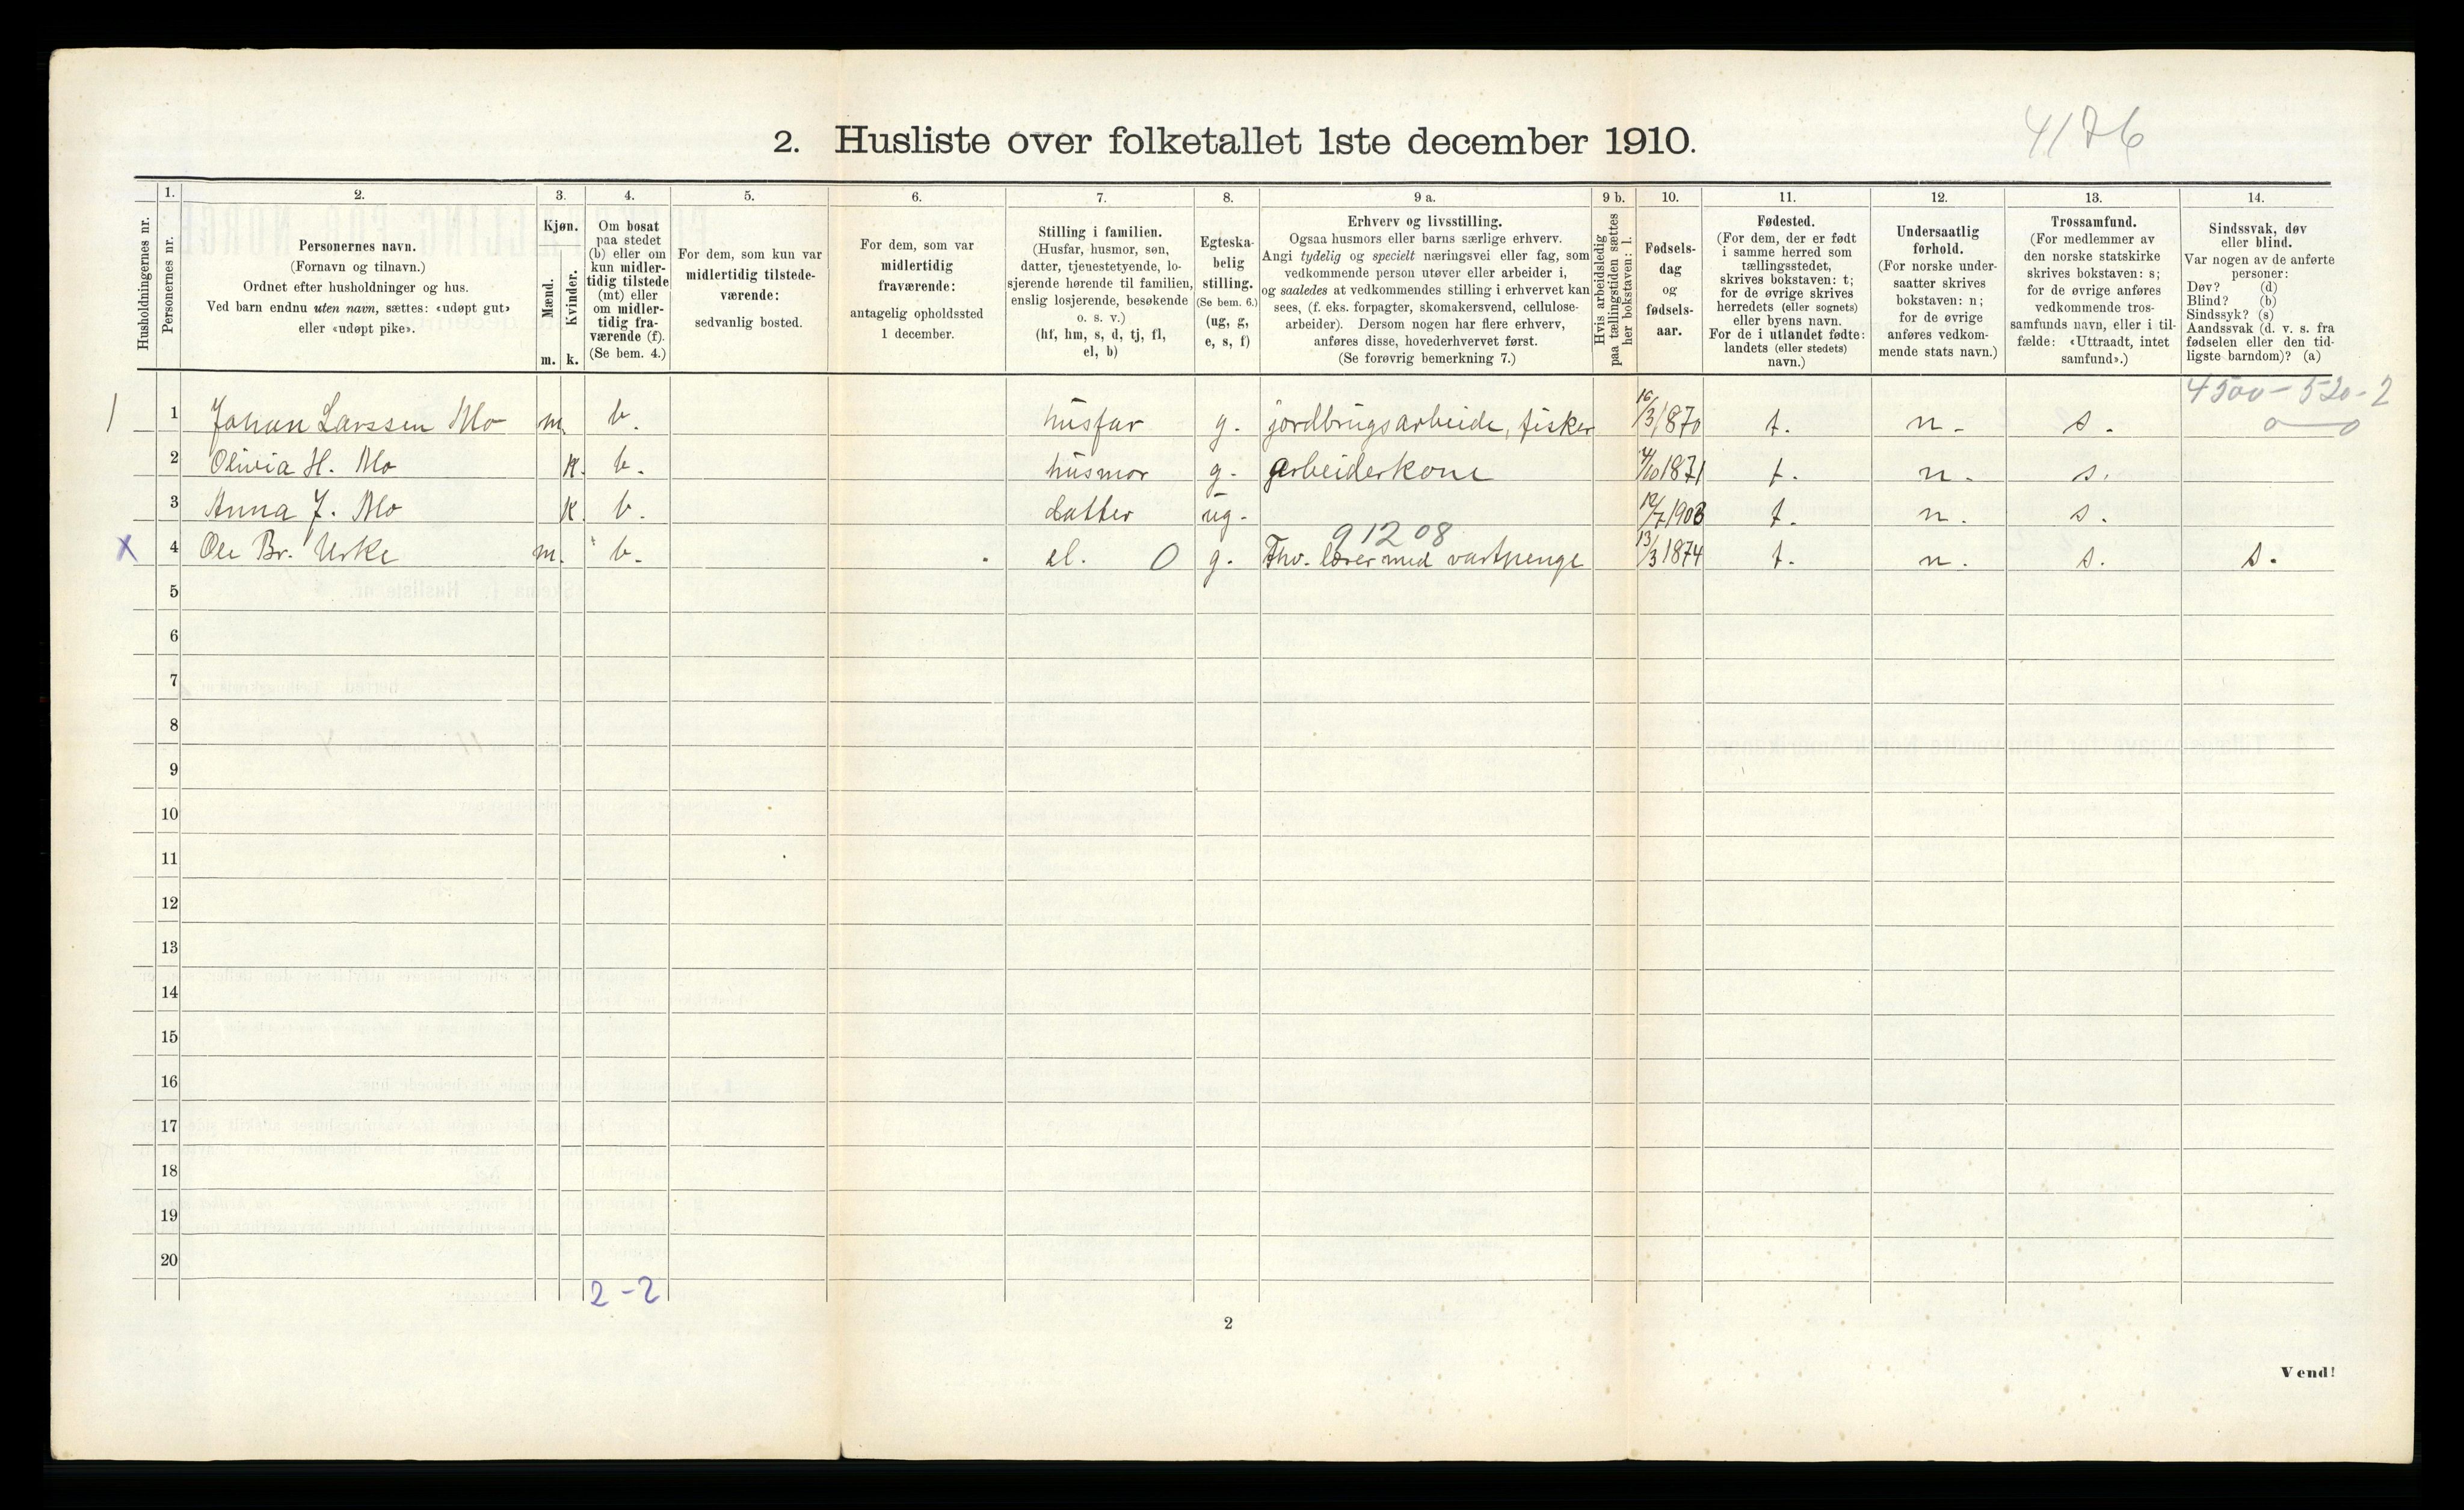 4176
2. Husliste over folketallet 1ste december 1910.
Husholdningernes nr.
1.
Personernes nr.
2.
Personernes navn.
(Fornavn og tilnavn.)
Ordnet efter husholdninger og hus.
Ved barn endnu uten navn, sættes: «udøpt gut»
eller «udøpt pike».
3.
Kjøn.
Mænd.
m.
Kvinder.
k.
4.
Om bosat
paa stedet
(b) eller om
kun midler-
tidig tilstede
(mt) eller
om midler-
tidig fra-
værende (f).
(Se bem. 4.)
5.
For dem, som kun var
midlertidig tilstede-
værende:
sedvanlig bosted.
6.
For dem, som var
midlertidig
fraværende:
antagelig opholdssted
1 december.
7.
Stilling i familien.
(Husfar, husmor, søn,
datter, tjenestetyende, lo-
sjerende hørende til familien,
enslig losjerende, besøkende
o. s. v.)
(hf, hm, s, d, tj, fl,
el, b)
8.
Egteska-
belig
stilling.
(Se bem. 6.)
(ug, g,
e, s, f)
9 a.
Erhverv og livsstilling.
Ogsaa husmors eller barns særlige erhverv.
Angi tydelig og specielt næringsvei eller fag, som
vedkommende person utøver eller arbeider i,
og saaledes at vedkommendes stilling i erhvervet kan
sees, (f. eks. forpagter, skomakersvend, cellulose-
arbeider). Dersom nogen har flere erhverv,
anføres disse, hovederhvervet først.
(Se forøvrig bemerkning 7.)
9 b.
Hvis arbeidsledig
paa tællingstiden sættes
her bokstaven: l.
10.
Fødsels-
dag
og
fødsels-
aar.
11.
Fødested.
(For dem, der er født
i samme herred som
tællingsstedet,
skrives bokstaven: t;
for de øvrige skrives
herredets (eller sognets)
eller byens navn.
For de i utlandet fødte:
landets (eller stedets)
navn.)
12.
Undersaatlig
forhold.
(For norske under-
saatter skrives
bokstaven: n;
for de øvrige
anføres vedkom-
mende stats navn.)
13.
Trossamfund.
(For medlemmer av
den norske statskirke
skrives bokstaven: s;
for de øvrige anføres
vedkommende tros-
samfunds navn, eller i til-
fælde: «Uttraadt, intet
samfund».)
14.
Sindssvak, døv
eller blind.
Var nogen av de anførte
personer:
Døv? (d)
Blind? (b)
Sindssyk? (s)
Aandssvak (d. v. s. fra
fødselen eller den tid-
ligste barndom)? (a)
4500 - 520 - 2
0 — 0
1 1 Johan Larssen Mo m. b. husfar g. jordbrugsarbeide, fisker 16/3 1870 t. n. s.
2 Olivia H. Mo k. b. husmor g. arbeiderkone 4/10 1871 t. n. s.
3 Anna J. Mo k. b. datter ug. 12/7 1903 t. n. s.
91208
x 4 Ole Br. Urke m. b. el. 0 g. Fhv. lærer med vartpenge 13/3 1874 t. n. s. s.
5
6
7
8
9
10
11
12
13
14
15
16
17
18
19
20
2 - 2
2
Vend!